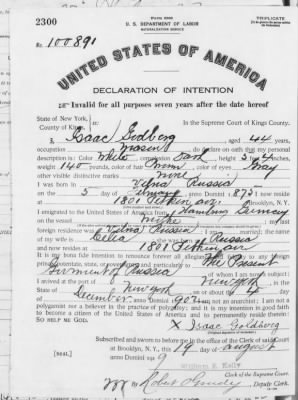 2300
Form 2203
TRIPLICATE
U. S. DEPARTMENT OF LABOR
NATURALIZATION SERVICE
No. 100891
UNITED STATES OF AMERICA
DECLARATION OF INTENTION
Invalid for all purposes seven years after the date hereof
State of New York,
County of Kings, ss: In the Supreme Court of Kings County.
I, Isaac Goldberg aged 44 years,
occupation Mason, do declare on oath that my personal
description is: Color White, complexion Dark, height 5 feet 4 inches,
weight 140 pounds, color of hair Brown, color of eyes Gray
other visible distinctive marks none
I was born in Vilna Russia
on the 5 day of January, anno Domini 1875; I now reside
at 1801 Pitkin ave Brooklyn, N. Y.
I emigrated to the United States of America from Hamburg Germany
on the vessel; my last
foreign residence was Vilna Russia
wife is Della Russia
and now resides at 1801 Pitkin ave
It is my bona fide intention to renounce forever all allegiance
potentate, state, or sovereignty, and particularly to The Present
Government of Russia, of whom I am now a subject;
I arrived at the port of New York
of New York, on or about the day
of December, anno Domini; I am not an anarchist; I am not a
polygamist nor a believer in the practice of polygamy; and it is my intention in good faith
to become a citizen of the United States of America and to permanently reside therein:
SO HELP ME GOD.
X Isaac Goldberg
Subscribed and sworn to before me in the office of the Clerk of said Court
at Brooklyn, N. Y., this 19 day of August
[SEAL.] anno Domini 1919
William E. Kelly
Clerk of the Supreme Court.
By Deputy Clerk.